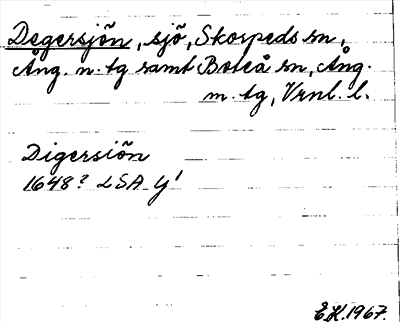 Degersjön, sjö, Skorpeds sn,
Ång. n. tg samt Boteå sn, Ång.
m. tg, Vrnl. l.
Digersiön
1648? LSA Y¹
E.H. 1967.